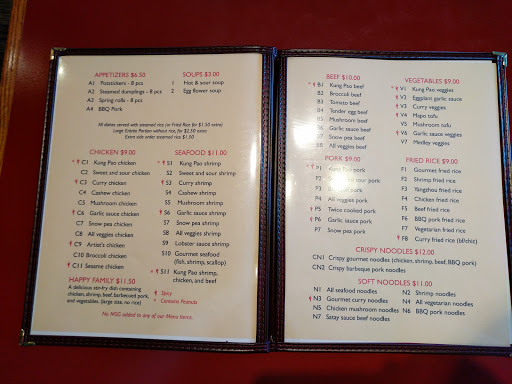 APPETIZERS $6.50
A1 Potstickers - 8 pcs
A2 Steamed dumplings - 8 pcs
A3 Spring rolls - 8 pcs
A4 BBQ Pork
SOUPS $3.00
1 Hot & sour soup
2 Egg flower soup
All dishes served with steamed rice (or Fried Rice for $1.50 extra)
Large Entrée Portion without rice, for $2.50 extra
Extra side order steamed rice $1.50
CHICKEN $9.00
* C1 Kung Pao chicken
C2 Sweet and sour chicken
C3 Curry chicken
C4 Cashew chicken
C5 Mushroom chicken
C6 Garlic sauce chicken
C7 Snow pea chicken
C8 All veggies chicken
C9 Artist's chicken
C10 Broccoli chicken
C11 Sesame chicken
HAPPY FAMILY $11.50
A delicious stir-fry dish containing
chicken, shrimp, beef, barbecued pork,
and vegetables. (large size, no rice)
SEAFOOD $11.00
* S1 Kung Pao shrimp
S2 Sweet and sour shrimp
S3 Curry shrimp
S4 Cashew shrimp
S5 Mushroom shrimp
S6 Garlic sauce shrimp
S7 Snow pea shrimp
S8 All veggies shrimp
S9 Lobster sauce shrimp
S10 Gourmet seafood
(fish, shrimp, scallop)
* S11 Kung Pao shrimp,
chicken, and beef
Spicy
* Contains Peanuts
No MSG added to any of our Menu items.
BEEF $10.00
* B1 Kung Pao beef
B2 Broccoli beef
B3 Tomato beef
B4 Tender egg beef
B5 Mushroom beef
B6 Garlic sauce beef
B7 Snow pea beef
B8 All veggies beef
VEGETABLES $9.00
* V1 Kung Pao veggies
V2 Eggplant garlic sauce
V3 Curry veggies
V4 Mapo tofu
V5 Mushroom tofu
V6 Garlic sauce veggies
V7 Medley veggies
PORK $9.00
* P1 Kung Pao pork
P2 sour pork
P3 pork
P4 All veggies pork
P5 Twice cooked pork
P6 Garlic sauce pork
P7 Snow pea pork
FRIED RICE $9.00
F1 Gourmet fried rice
F2 Shrimp fried rice
F3 Yangzhou fried rice
F4 Chicken fried rice
F5 Beef fried rice
F6 BBQ pork fried rice
F7 Vegetarian fried rice
F8 Curry fried rice (bf/chic)
CRISPY NOODLES $12.00
CN1 Crispy gourmet noodles (chicken, shrimp, beef, BBQ pork)
CN2 Crispy barbeque pork noodles
SOFT NOODLES $11.00
N1 All seafood noodles
N3 Gourmet curry noodles
N5 Chicken mushroom noodles
N7 Satay sauce beef noodles
N2 Shrimp noodles
N4 All vegetarian noodles
N6 BBQ pork noodles